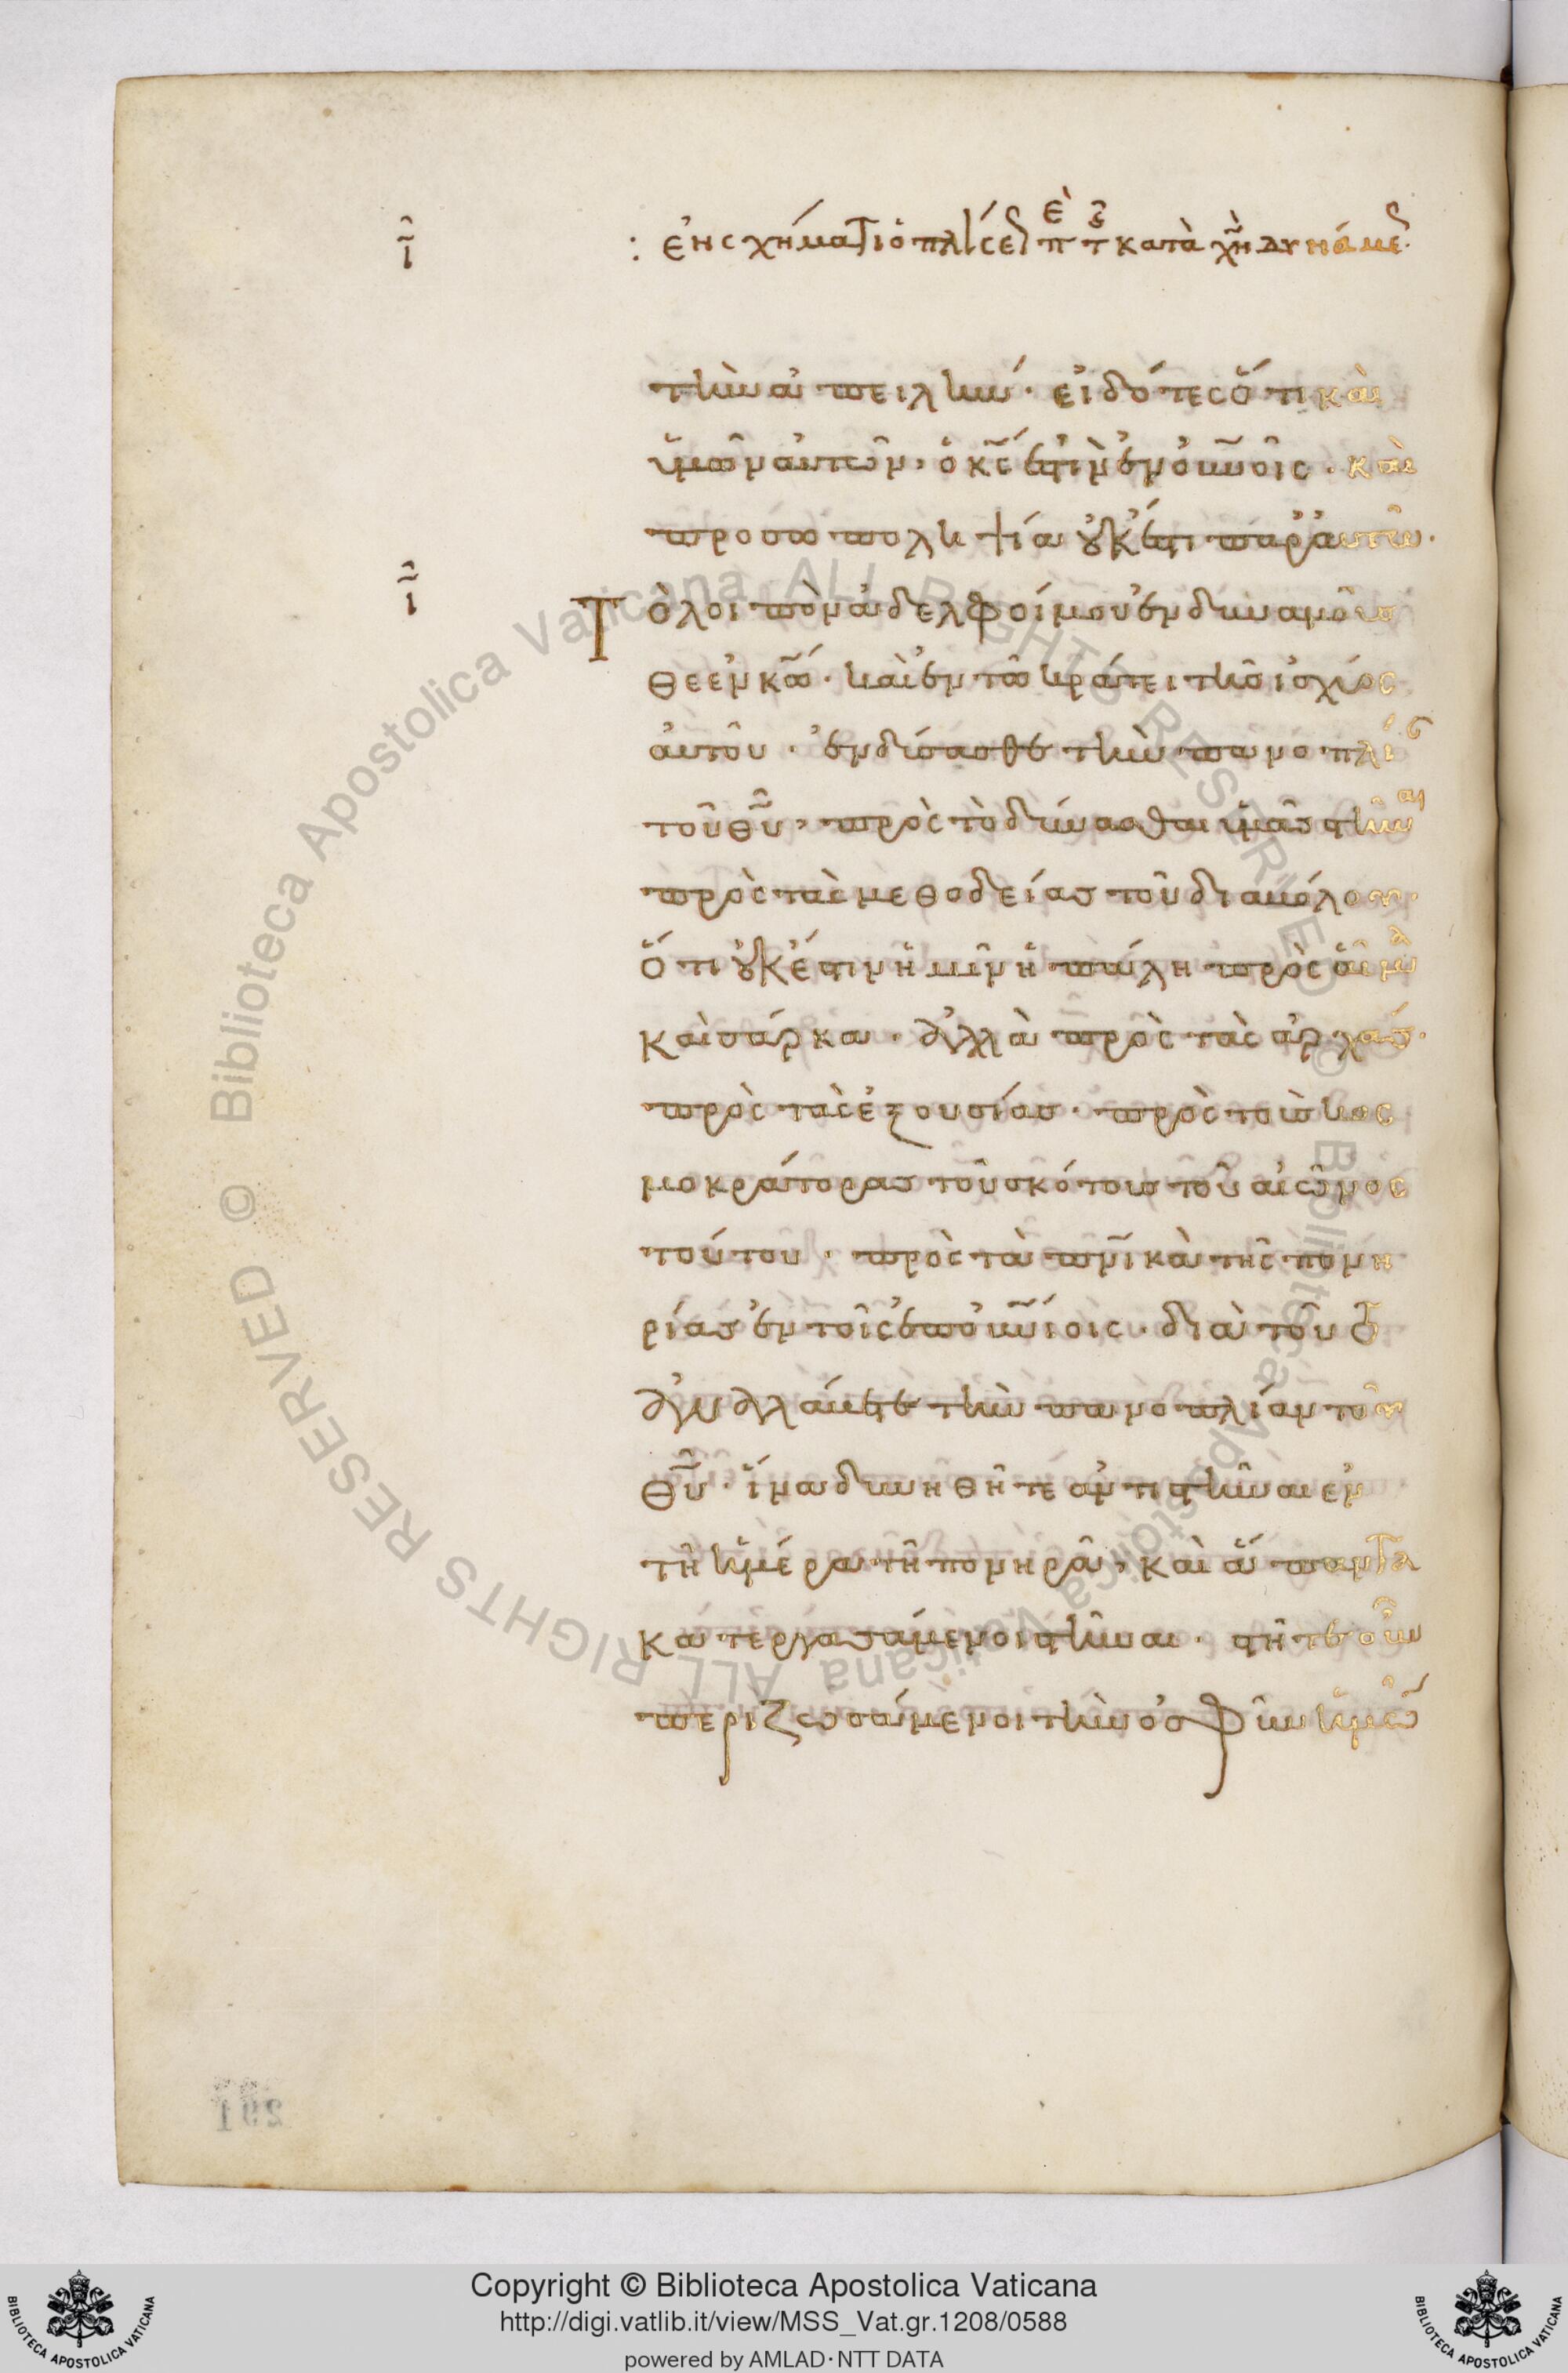 ῑ̂
: ἐν σχήματι ὁπλίσεως ἐπὶ τῆς κατὰ χ̅ν̅ δυνάμε
τὴν ἀπειλήν· εἰδότες ὅτι καὶ
ὑμῶν αὐτῶν, ὁ κ̅ς̅ ἐστὶν ἐν οὐ̅ν̅οῖς· καὶ
προσωποληψία οὐκ ἔστι παρ' αὐτῶ·
ῑ̂
Τὸ λοιπὸν ἀδελφοί μου ἐνδυναμοῦσ
θε ἐν κ̅ω̅· καὶ ἐν τῶ κράτει τῆς ἰσχύος
αὐτοῦ· ἐνδύσασθε τὴν πανοπλί
τοῦ θ̅υ̅, πρὸς τὸ δύνασθαι ὑμᾶς στῆναι
πρὸς τὰς μεθοδείας τοῦ διαβόλου·
ὅτι οὐκ ἔστιν ἡμῖν ἡ πάλη πρὸς αἷμα
καὶ σάρκα· ἀλλὰ πρὸς τὰς ἀρχάς·
πρὸς τὰς ἐξουσίας· πρὸς τοὺς κοσ
μοκράτορας τοῦ σκότους τοῦ αἰῶνος
τούτου· πρὸς τὰ π̅ν̅ικὰ τῆς πονη
ρίας ἐν τοῖς ἐπου̅ν̅ίοις· διὰ τοῦτ
ἀναλάβετε τὴν πανοπλίαν τοῦ
θ̅υ̅· ἵνα δυνηθῆτε ἀντιστῆναι ἐν
τῆ ἡμέρα τῆ πονηρᾶ, καὶ ἅπαντα
κατεργασάμενοι στῆναι· στῆτε οὖν
περιζωσάμενοι τὴν ὀσφῦν ὑμῶ
291
© Biblioteca Apostolica Vaticana ALL RIGHTS RESERVED © Biblioteca Apostolica Vaticana ALL RIGHTS RESERVED
Copyright © Biblioteca Apostolica Vaticana
http://digi.vatlib.it/view/MSS_Vat.gr.1208/0588
powered by AMLAD·NTT DATA
BIBLIOTECA APOSTOLICA VATICANA
BIBLIOTECA APOSTOLICA VATICANA